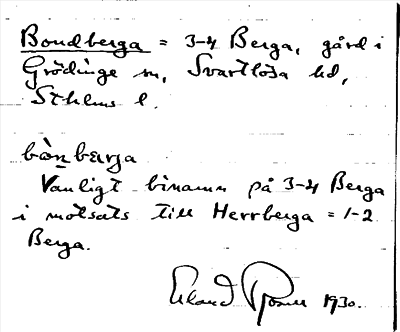 Bondberga = 3-4 Berga, gård i
Grödinge sn, Svartlösa hd,
Sthlms l.
bòn bærja
Vanligt binamn på 3-4 Berga
i motsats till Herrberga = 1-2
Berga.
Erland Rosell 1930.